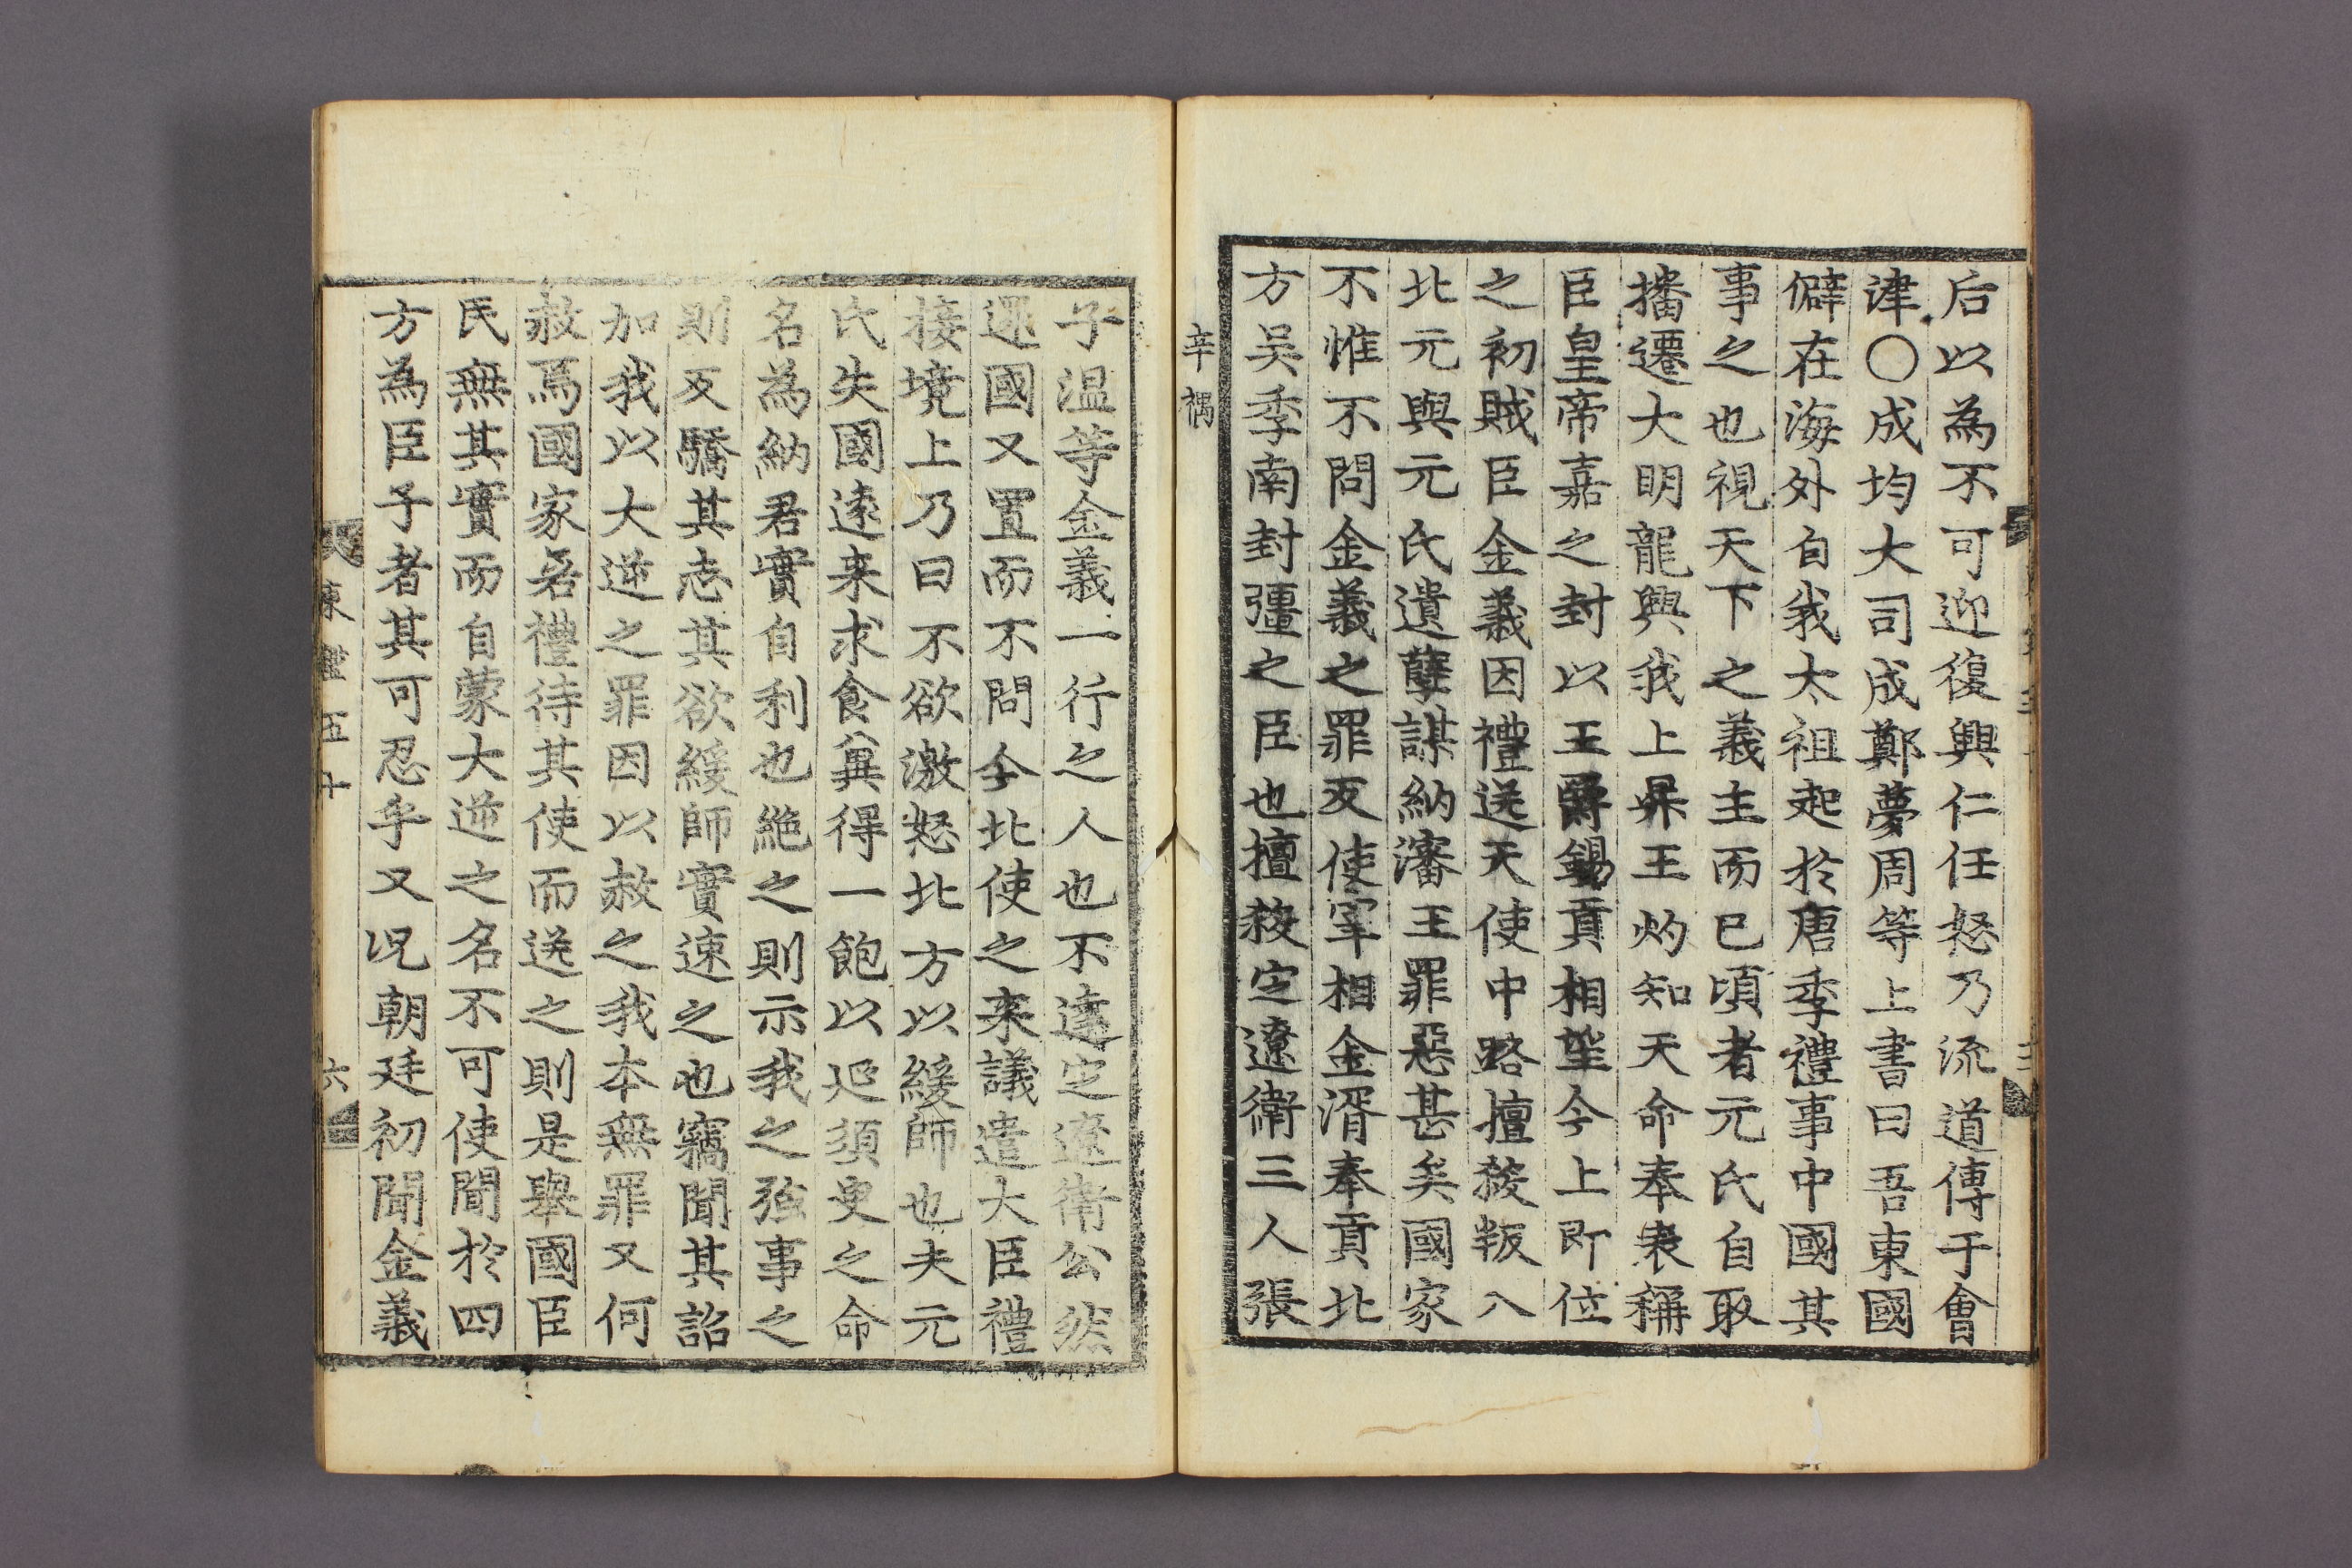 后以為不可迎復興仁任怒乃流道傳于會
津〇成均大司成鄭夢周等上書曰吾東國
僻在海外自我太祖起於唐季禮事中國其
事之也視天下之義主而已頃者元氏自取
播遷大明龍興我上昇王灼知天命奉表稱
臣皇帝嘉之封以王爵錫貢相望今上即位
之初賊臣金義因禮送天使中路擅殺叛入
北元與元氏遺孽謀納瀋王罪惡甚矣國家
不惟不問金義之罪反使宰相金湑奉貢北
方吳季南封疆之臣也擅殺定遼衛三人張
辛禑
子温等金義一行之人也不達定遼衛公然
還國又置而不問今北使之来議遣大臣禮
接境上乃曰不欲激怒北方以緩師也夫元
氏失國遠来求食冀得一飽以延須臾之命
名為納君實自利也絶之則示我之強事之
則反驕其志其欲緩師實速之也竊聞其詔
加我以大逆之罪因以赦之我本無罪又何
赦焉國家若禮待其使而送之則是舉國臣
民無其實而自蒙大逆之名不可使聞於四
方為臣子者其可忍乎又况朝廷初聞金義
東鑑五十 六